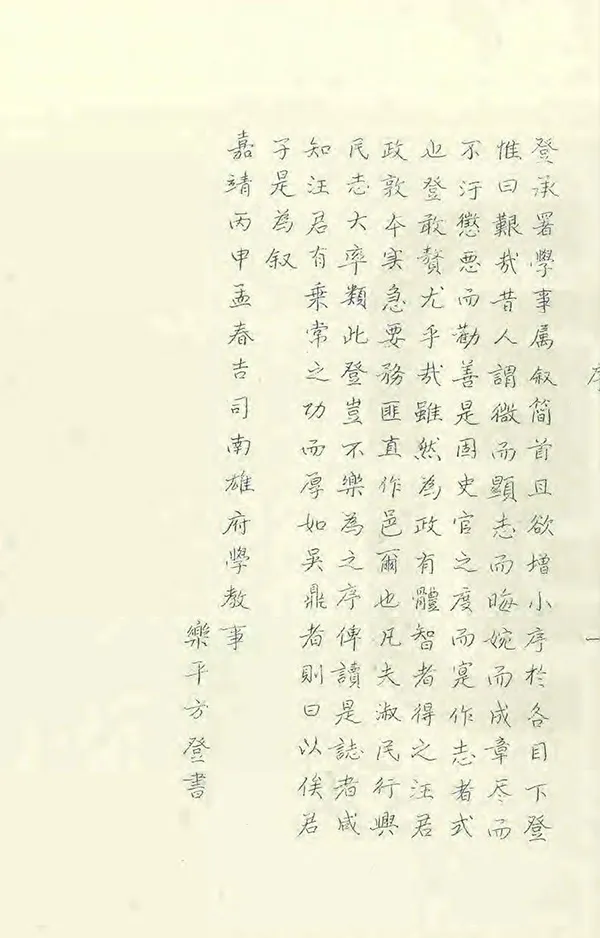 序
一
登承署學事属叙简首且欲增小序於各目下登
惟曰艱哉昔人謂微而顯志而晦婉而成章尽而
不汙懲悪而勸善是固史官之度而寔作志者式
也登敢贅尤乎哉雖然為政有體智者得之汪君
政敦本实急要務匪直作邑爾也凡夫淑民行興
民志大率類此登豈不樂為之序俾讀是誌者咸
知汪君有乗常之功而厚如吴鼎者則曰以俟君
子是為叙
嘉靖丙申孟春吉司南雄府學教事
樂平方登書